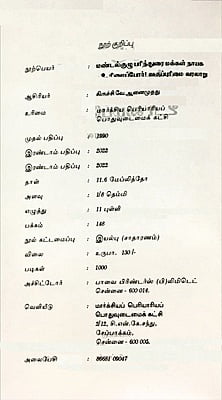 நூற் குறிப்பு
நூற்பெயர் : மண்டல்குழு பரிந்துரை மக்கள் நாயக
உரிமைப்போர்! வகுப்புரிமை வரலாறு
ஆசிரியர் : திருச்சி வே.ஆனைமுத்து
உரிமை : மார்க்சிய பெரியாரியப்
பொதுவுடைமைக் கட்சி
முதல் பதிப்பு : 1990
இரண்டாம் பதிப்பு : 2022
இரண்டாம் பதிப்பு : 2022
தாள் : 11.6 மேப்லித்தோ
அளவு : 1/8 தெம்மி
எழுத்து : 11 புள்ளி
பக்கம் : 146
நூல் கட்டமைப்பு : இயல்பு (சாதாரணம்)
விலை : உருபா. 130/-
படிகள் : 1000
அச்சிட்டோர் : பாவை பிரிண்டர்ஸ் (பி)லிமிடெட்
சென்னை - 600 014.
வெளியீடு : மார்க்சியப் பெரியாரியப்
பொதுவுடைமைக் கட்சி
2/12, சி.என்.கே.சந்து,
சேப்பாக்கம்,
சென்னை - 600 005.
அலைபேசி : 86681 09047